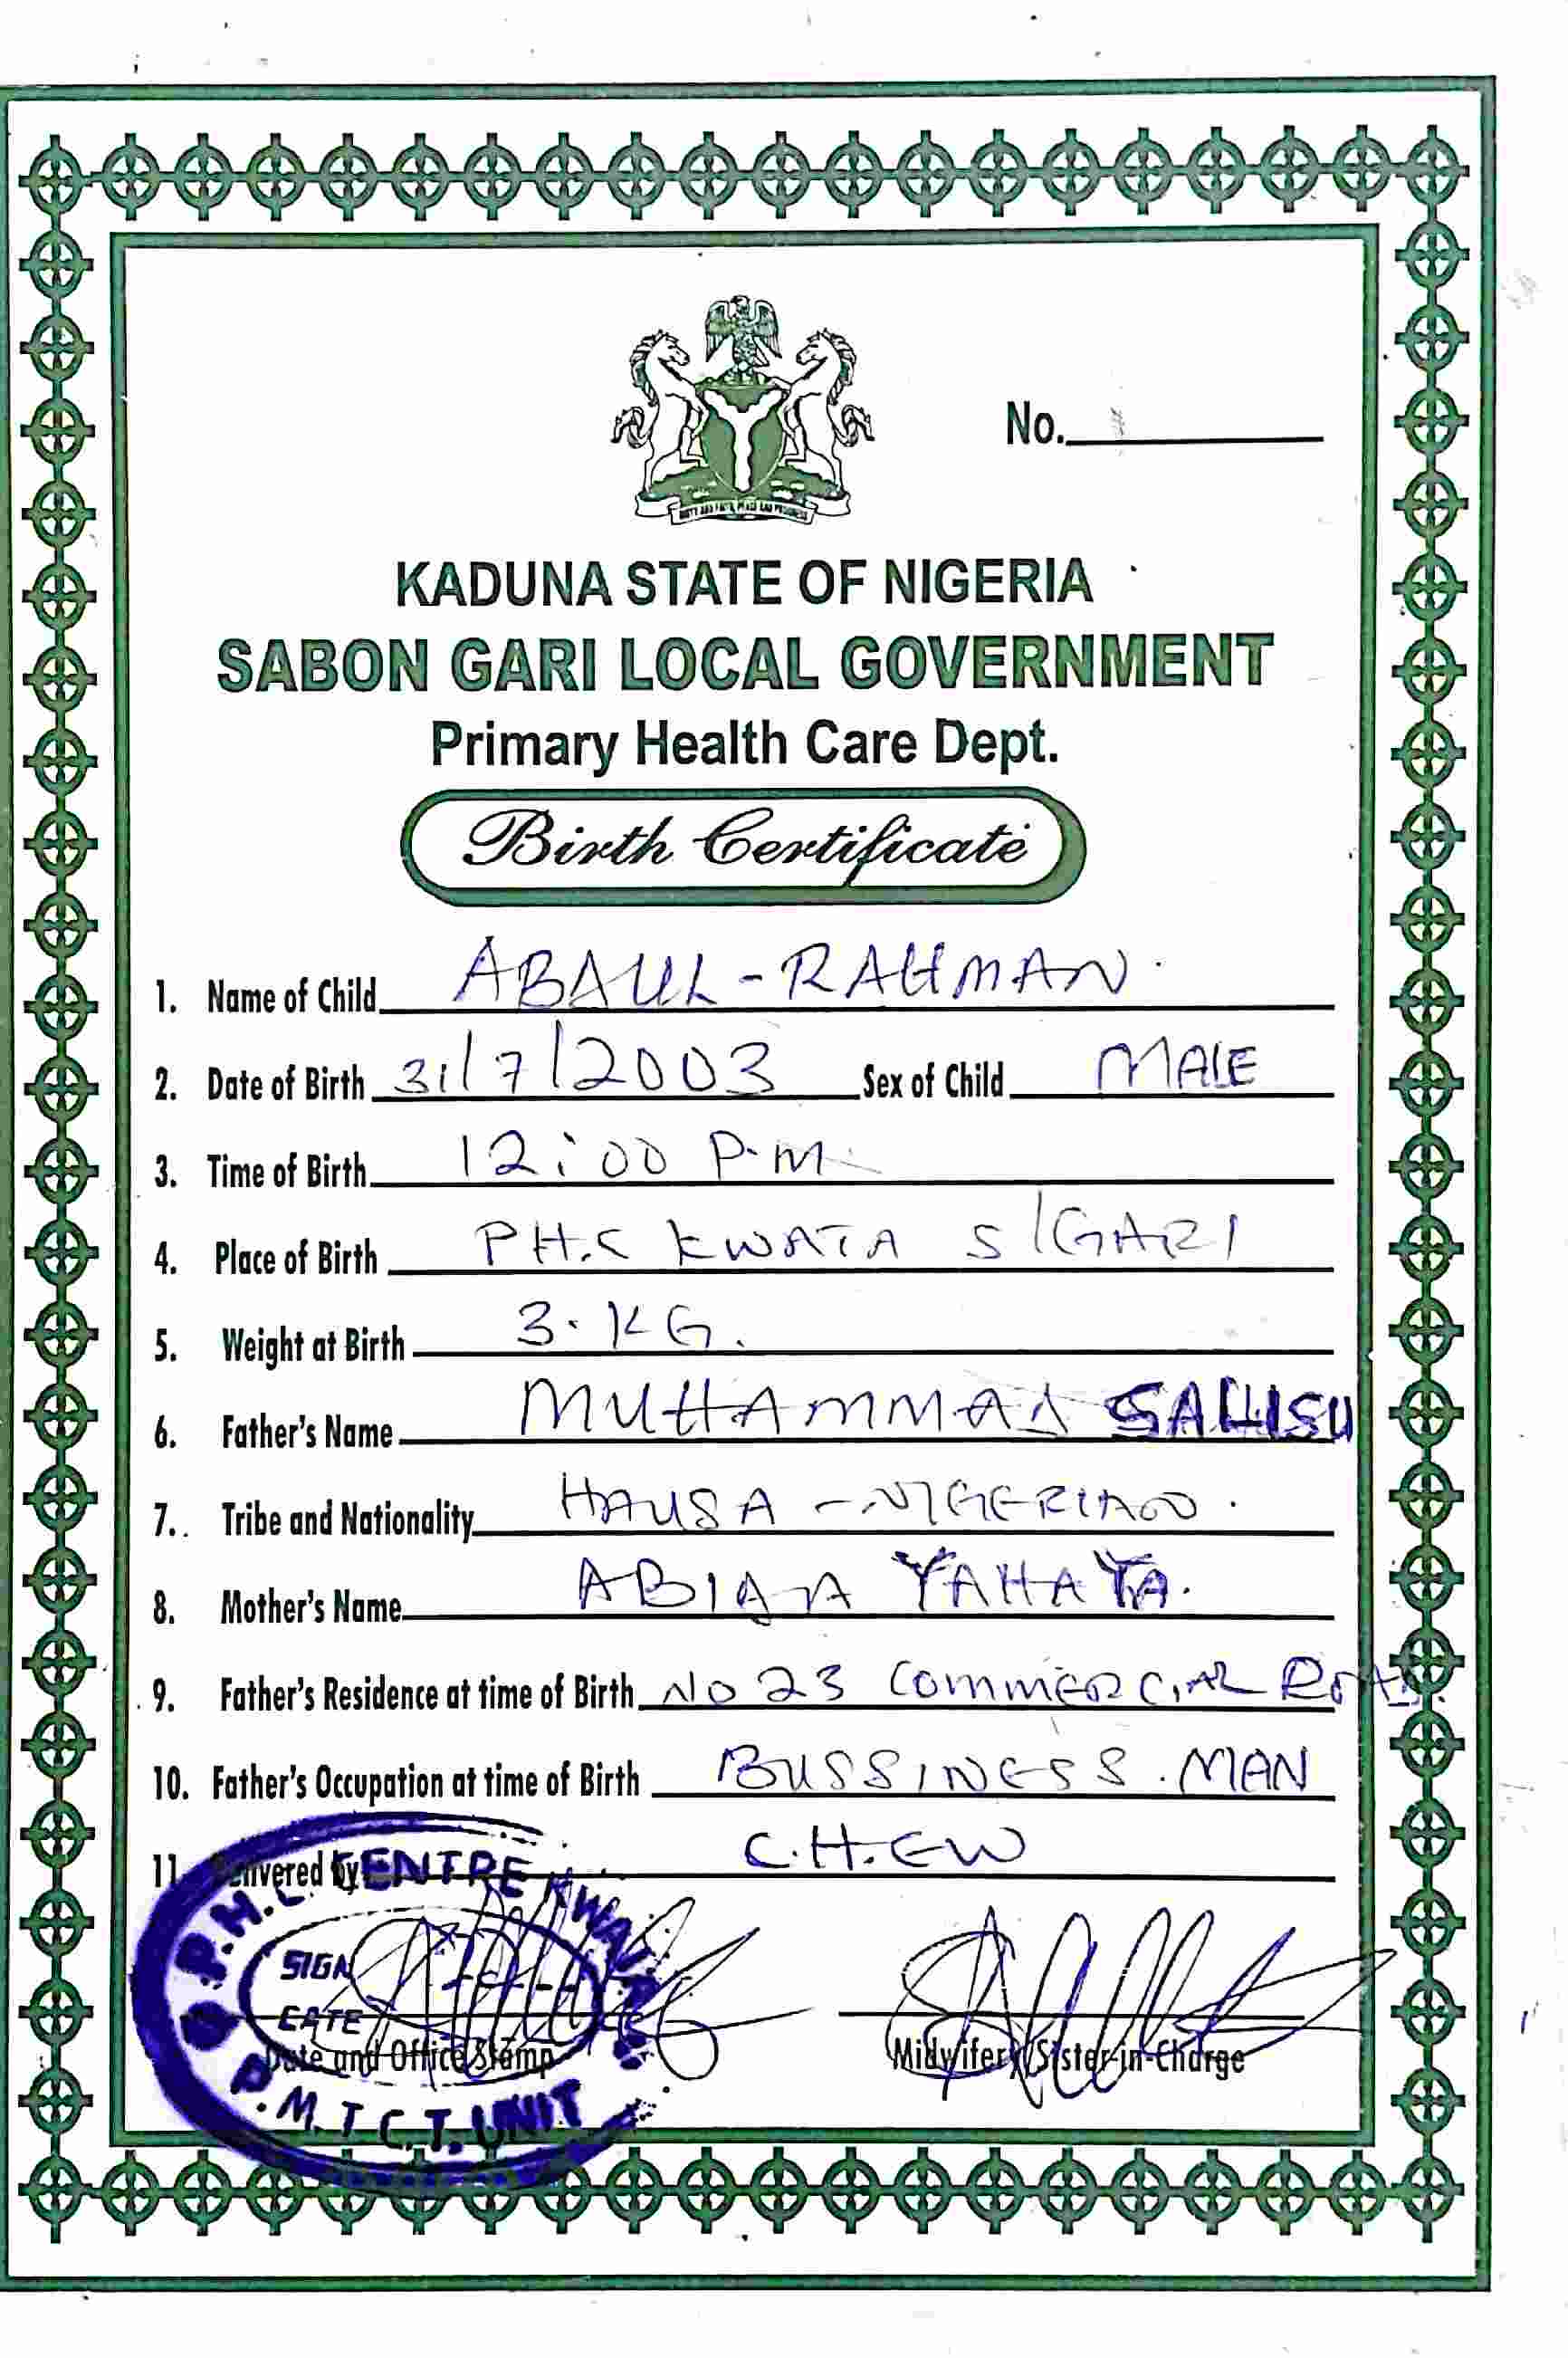 No.
KADUNA STATE OF NIGERIA
SABON GARI LOCAL GOVERNMENT
Primary Health Care Dept.
Birth Certificate
1. Name of Child ABDUL-RAHMAN.
2. Date of Birth 31/7/2003 Sex of Child MALE
3. Time of Birth 12:00 P.M.
4. Place of Birth PH.C KWATA S/GARI
5. Weight at Birth 3.KG.
6. Father's Name MUHAMMAD SALISU
7.. Tribe and Nationality HAUSA - NIGERIAN.
8. Mother's Name ABIDA YAHAYA.
9. Father's Residence at time of Birth NO 23 COMMERCIAL ROAD.
10. Father's Occupation at time of Birth BUSSINESS.MAN
11. Delivered by C.H.EW
P.H.C. CENTRE KWATA
SIGN
DATE
Date and Office Stamp
Midwifery/Sister-in-Charge
P.M.T.C.T. UNIT